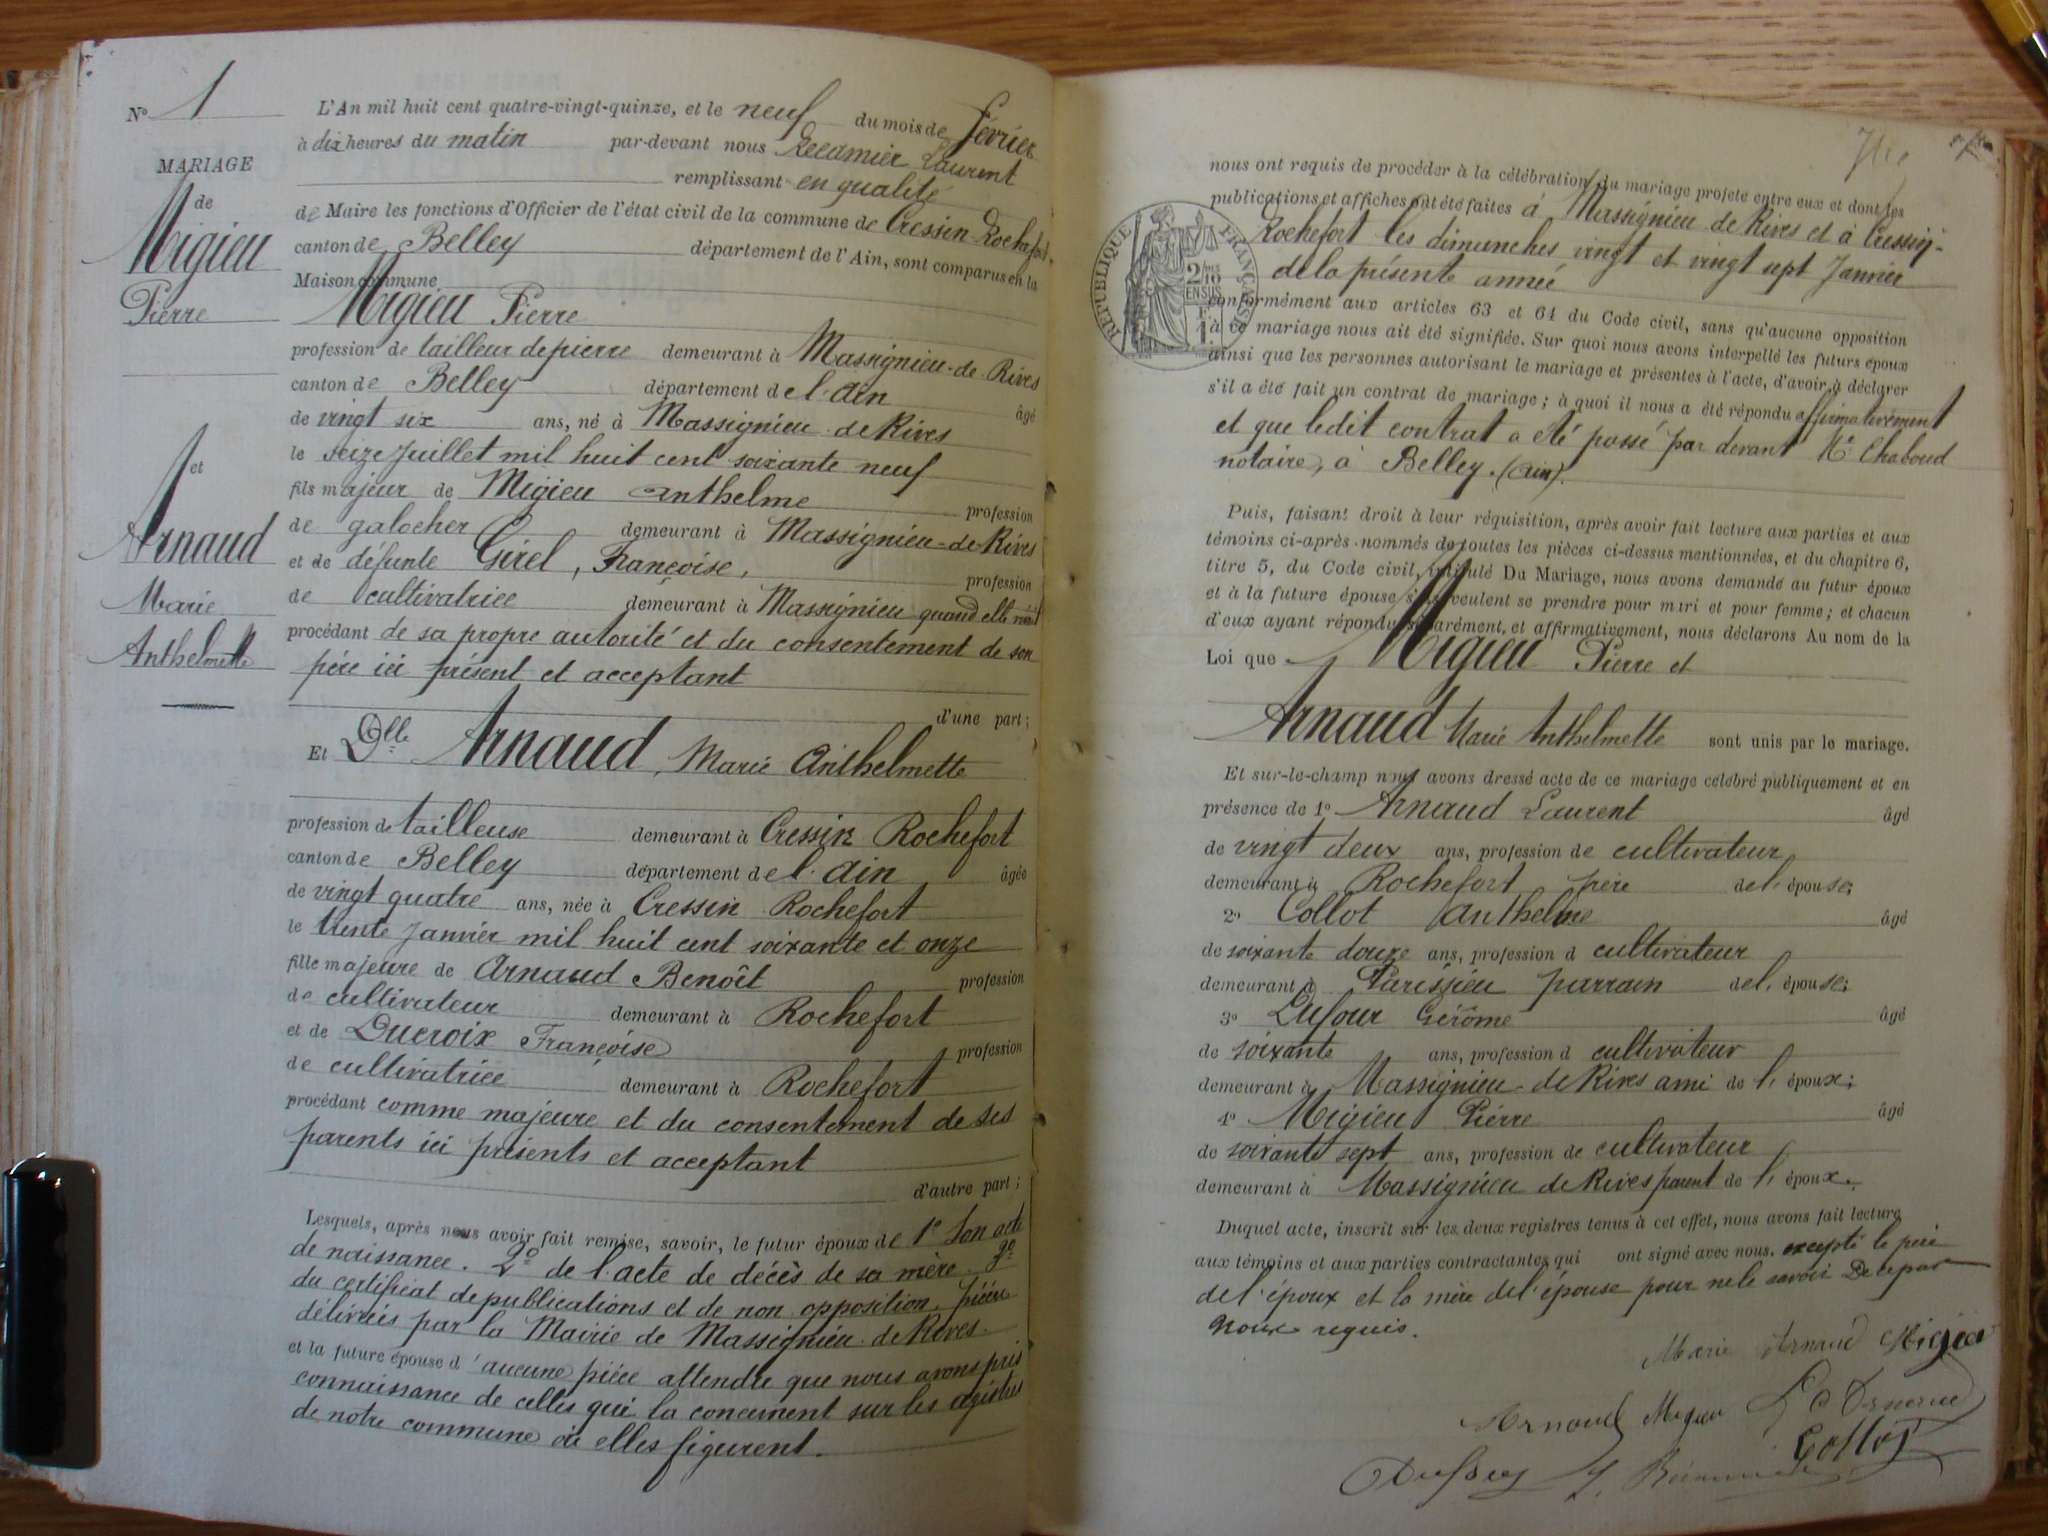 N° 1
MARIAGE
de
Migieu
Pierre
et
Arnaud
Marie
Anthelmette
L'An mil huit cent quatre-vingt-quinze, et le neuf du mois de février
à dix heures du matin par-devant nous Récamier Laurent
remplissant en qualité
de Maire les fonctions d'Officier de l'état civil de la commune de Cressin-Rochefort
canton de Belley département de l'Ain, sont comparus en la
Maison commune
Migieu Pierre
profession de tailleur de pierre demeurant à Massignieu-de-Rives
canton de Belley département de l'Ain âgé
de vingt six ans, né à Massignieu-de Rives
le seize Juillet mil huit cent soixante neuf
fils majeur de Migieu Anthelme profession
de galocher demeurant à Massignieu-de-Rives
et de défunte Girel, Françoise, profession
de cultivatrice demeurant à Massignieu quand elle
procédant de sa propre autorité et du consentement de son
père ici présent et acceptant
d'une part;
Et Dlle Arnaud, Marie Anthelmette
profession de tailleuse demeurant à Cressin Rochefort
canton de Belley département de l'Ain âgée
de vingt quatre ans, née à Cressin Rochefort
le trente Janvier mil huit cent soixante et onze
fille majeure de Arnaud Benoît profession
de cultivateur demeurant à Rochefort
et de Ducroix Françoise profession
de cultivatrice demeurant à Rochefort
procédant comme majeure et du consentement de ses
parents ici présents et acceptant
d'autre part;
Lesquels, après nous avoir fait remise, savoir, le futur époux de 1° son acte
de naissance. 2° de l'acte de décès de sa mère 3°
du certificat de publications et de non opposition, pièces
délivrées par la Mairie de Massignieu-de Rives.
et la future épouse d'aucune pièce attendu que nous avons pris
connaissance de celles qui la concernent sur les registres
de notre commune où elles figurent.
nous ont requis de procéder à la célébration du mariage projeté entre eux et dont les
publications et affiches ont été faites à Massignieu de Rives et à Cressin-
Rochefort les dimanches vingt et vingt sept Janvier
de la présente année
RÉPUBLIQUE FRANÇAISE
2/10
EN SUS
conformément aux articles 63 et 64 du Code civil, sans qu'aucune opposition
à ce mariage nous ait été signifiée. Sur quoi nous avons interpellé les futurs époux
ainsi que les personnes autorisant le mariage et présentes à l'acte, d'avoir à déclarer
s'il a été fait un contrat de mariage; à quoi il nous a été répondu affirmativement
et que ledit contrat a été passé par devant Me Chaboud
notaire, à Belley. (Ain).
Puis, faisant droit à leur réquisition, après avoir fait lecture aux parties et aux
témoins ci-après nommés de toutes les pièces ci-dessus mentionnées, et du chapitre 6,
titre 5, du Code civil, intitulé Du Mariage, nous avons demandé au futur époux
et à la future épouse s'ils veulent se prendre pour mari et pour femme; et chacun
d'eux ayant répondu séparément, et affirmativement, nous déclarons Au nom de la
Loi que Migieu Pierre et
Arnaud Marie Anthelmette sont unis par le mariage.
Et sur-le-champ nous avons dressé acte de ce mariage célébré publiquement et en
présence de 1° Arnaud Laurent âgé
de vingt deux ans, profession de cultivateur
demeurant à Rochefort frère de l'épouse;
2° Collot Anthelme âgé
de soixante douze ans, profession d cultivateur
demeurant à Parissieu parrain de l'épouse;
3° Dufour Gérôme âgé
de soixante ans, profession d cultivateur
demeurant à Massignieu-de Rives ami de l'époux;
4° Migieu Pierre âgé
de soixante sept ans, profession de cultivateur
demeurant à Massignieu de Rives parent de l'époux.
Duquel acte, inscrit sur les deux registres tenus à cet effet, nous avons fait lecture
aux témoins et aux parties contractantes qui ont signé avec nous. excepté le père
de l'époux et la mère de l'épouse pour ne le savoir De ce par
nous requis.
Marie Arnaud Migieu
Arnaud Migieu Arnaud
Collot
Dufour